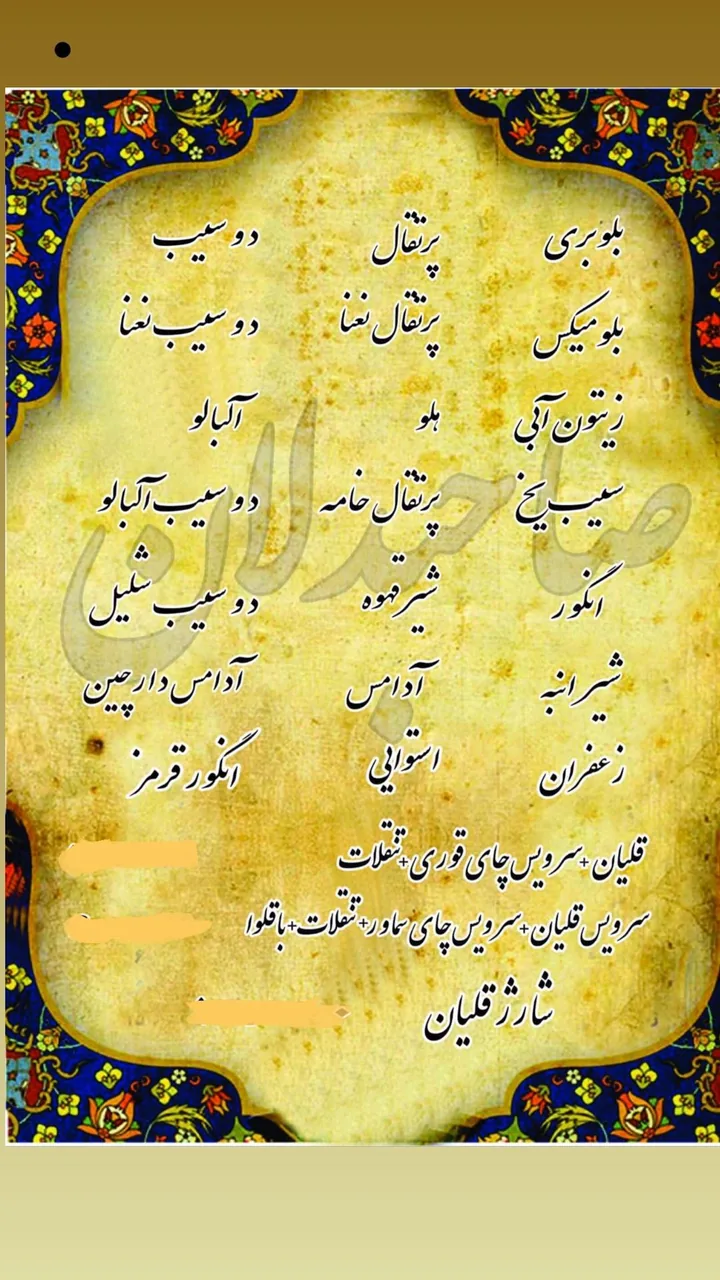 بلوبری پرتقال دو سیب
بلو میکس پرتقال نعنا دو سیب نعنا
زیتون آبی هلو آلبالو
سیب یخ پرتقال خامه دو سیب آلبالو
انگور شیر قهوه دو سیب شلیل
شیر انبه آدامس آدامس دارچین
زعفران استوایی انگور قرمز
قلیان+سرویس چای قوری+تنقلات
سرویس قلیان+سرویس چای سماور+تنقلات+باقلوا
شارژ قلیان
صاحبدلان